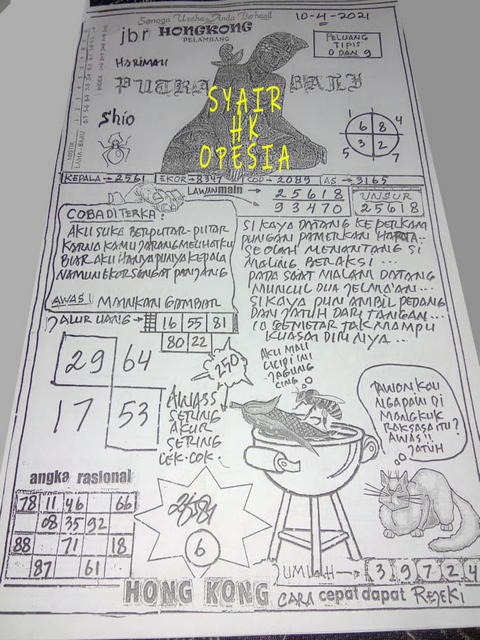 Semoga Usaha Anda Berhasil
10-4-2021
jbr HONGKONG
PELAMBANG
PELUANG
TIPIS
0 DAN 9
HARIMAU
PUTRA BALI
SYAIR
HK
OPESIA
Shio
4 6 8 1
5 3 2 7
KEPALA → 2561 EKOR → 8347 COP → 2089 AS → 3165
LAWAN main → 25618
93470
UNSUR
25618
COBA DITERKA:
AKU SUKA BERPUTAR-PUTAR
KARNA KAMU JARANG MELIHATKU
BIAR AKU HANYA PUNYA KEPALA
NAMUN EKOR SANGAT PANJANG
AWAS! MAINKAN GAMBAR
SI KAYA DATANG KE PERKAM
PUNGAN PAMERKAN HARTA..
SEOLAH MENANTANG SI
MALING BERAKSI...
PADA SAAT MALAM DATANG
MUNCUL DUA JELMA'AN...
SI KAYA PUN AMBIL PEDANG
DAN JATUH DARI TANGAN...
10 CENTIMETAR TAK MAMPU
KUASAI DIRINYA...
JALUR UANG →
16 55 81
80 22
250
29 64
17 53
AWASS
SERING
AKUR
SERING
CEK-COK.
AKU MAU
CICIPI INI
JAGUNG
CING
AWON KAU
NGAPAIN DI
MANGKUK
RAKSASA ITU?
AWAS!!
JATUH
angka rasional
78 11 46 66
08 35 92
88 71 18
87 61
6
JUMLAH → 3 9 7 2 4
HONG KONG CARA cepat dapat REJEKI